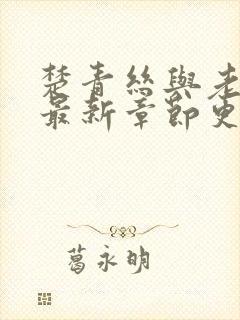 楚青絲與老
最新章節史
葛永明